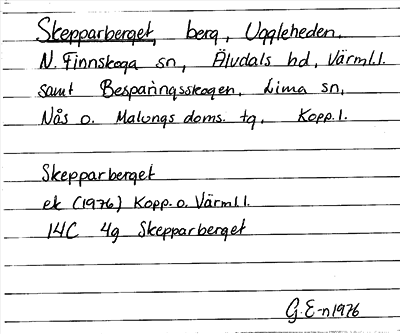 Skepparberget, berg, Uggleheden.
N. Finnskoga sn, Älvdals hd, Värml.l.
samt Besparingsskogen, Lima sn,
Nås o. Malungs doms. tg, Kopp.l.
Skepparberget
ek (1976) Kopp. o. Värml.l.
14C 4g Skepparberget
G.E-n 1976